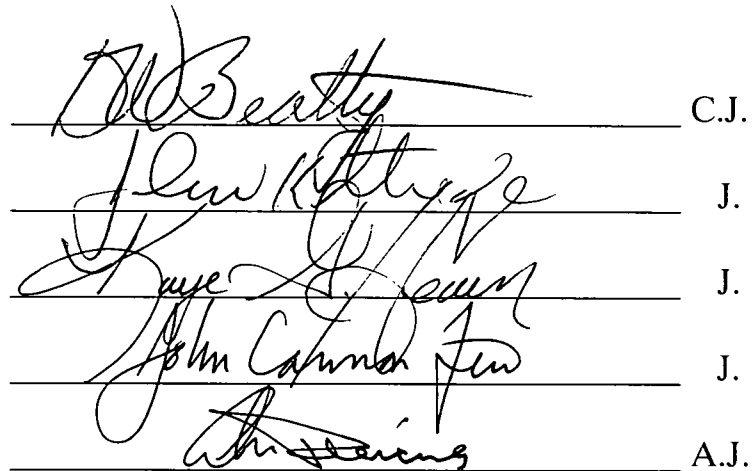 DW Beatty C.J.
John Kittredge J.
Kaye G. Hearn J.
John Cannon Few J.
A.J.